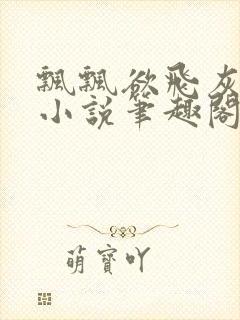 飄飄欲飛灰
小說筆趣閣
萌寶吖